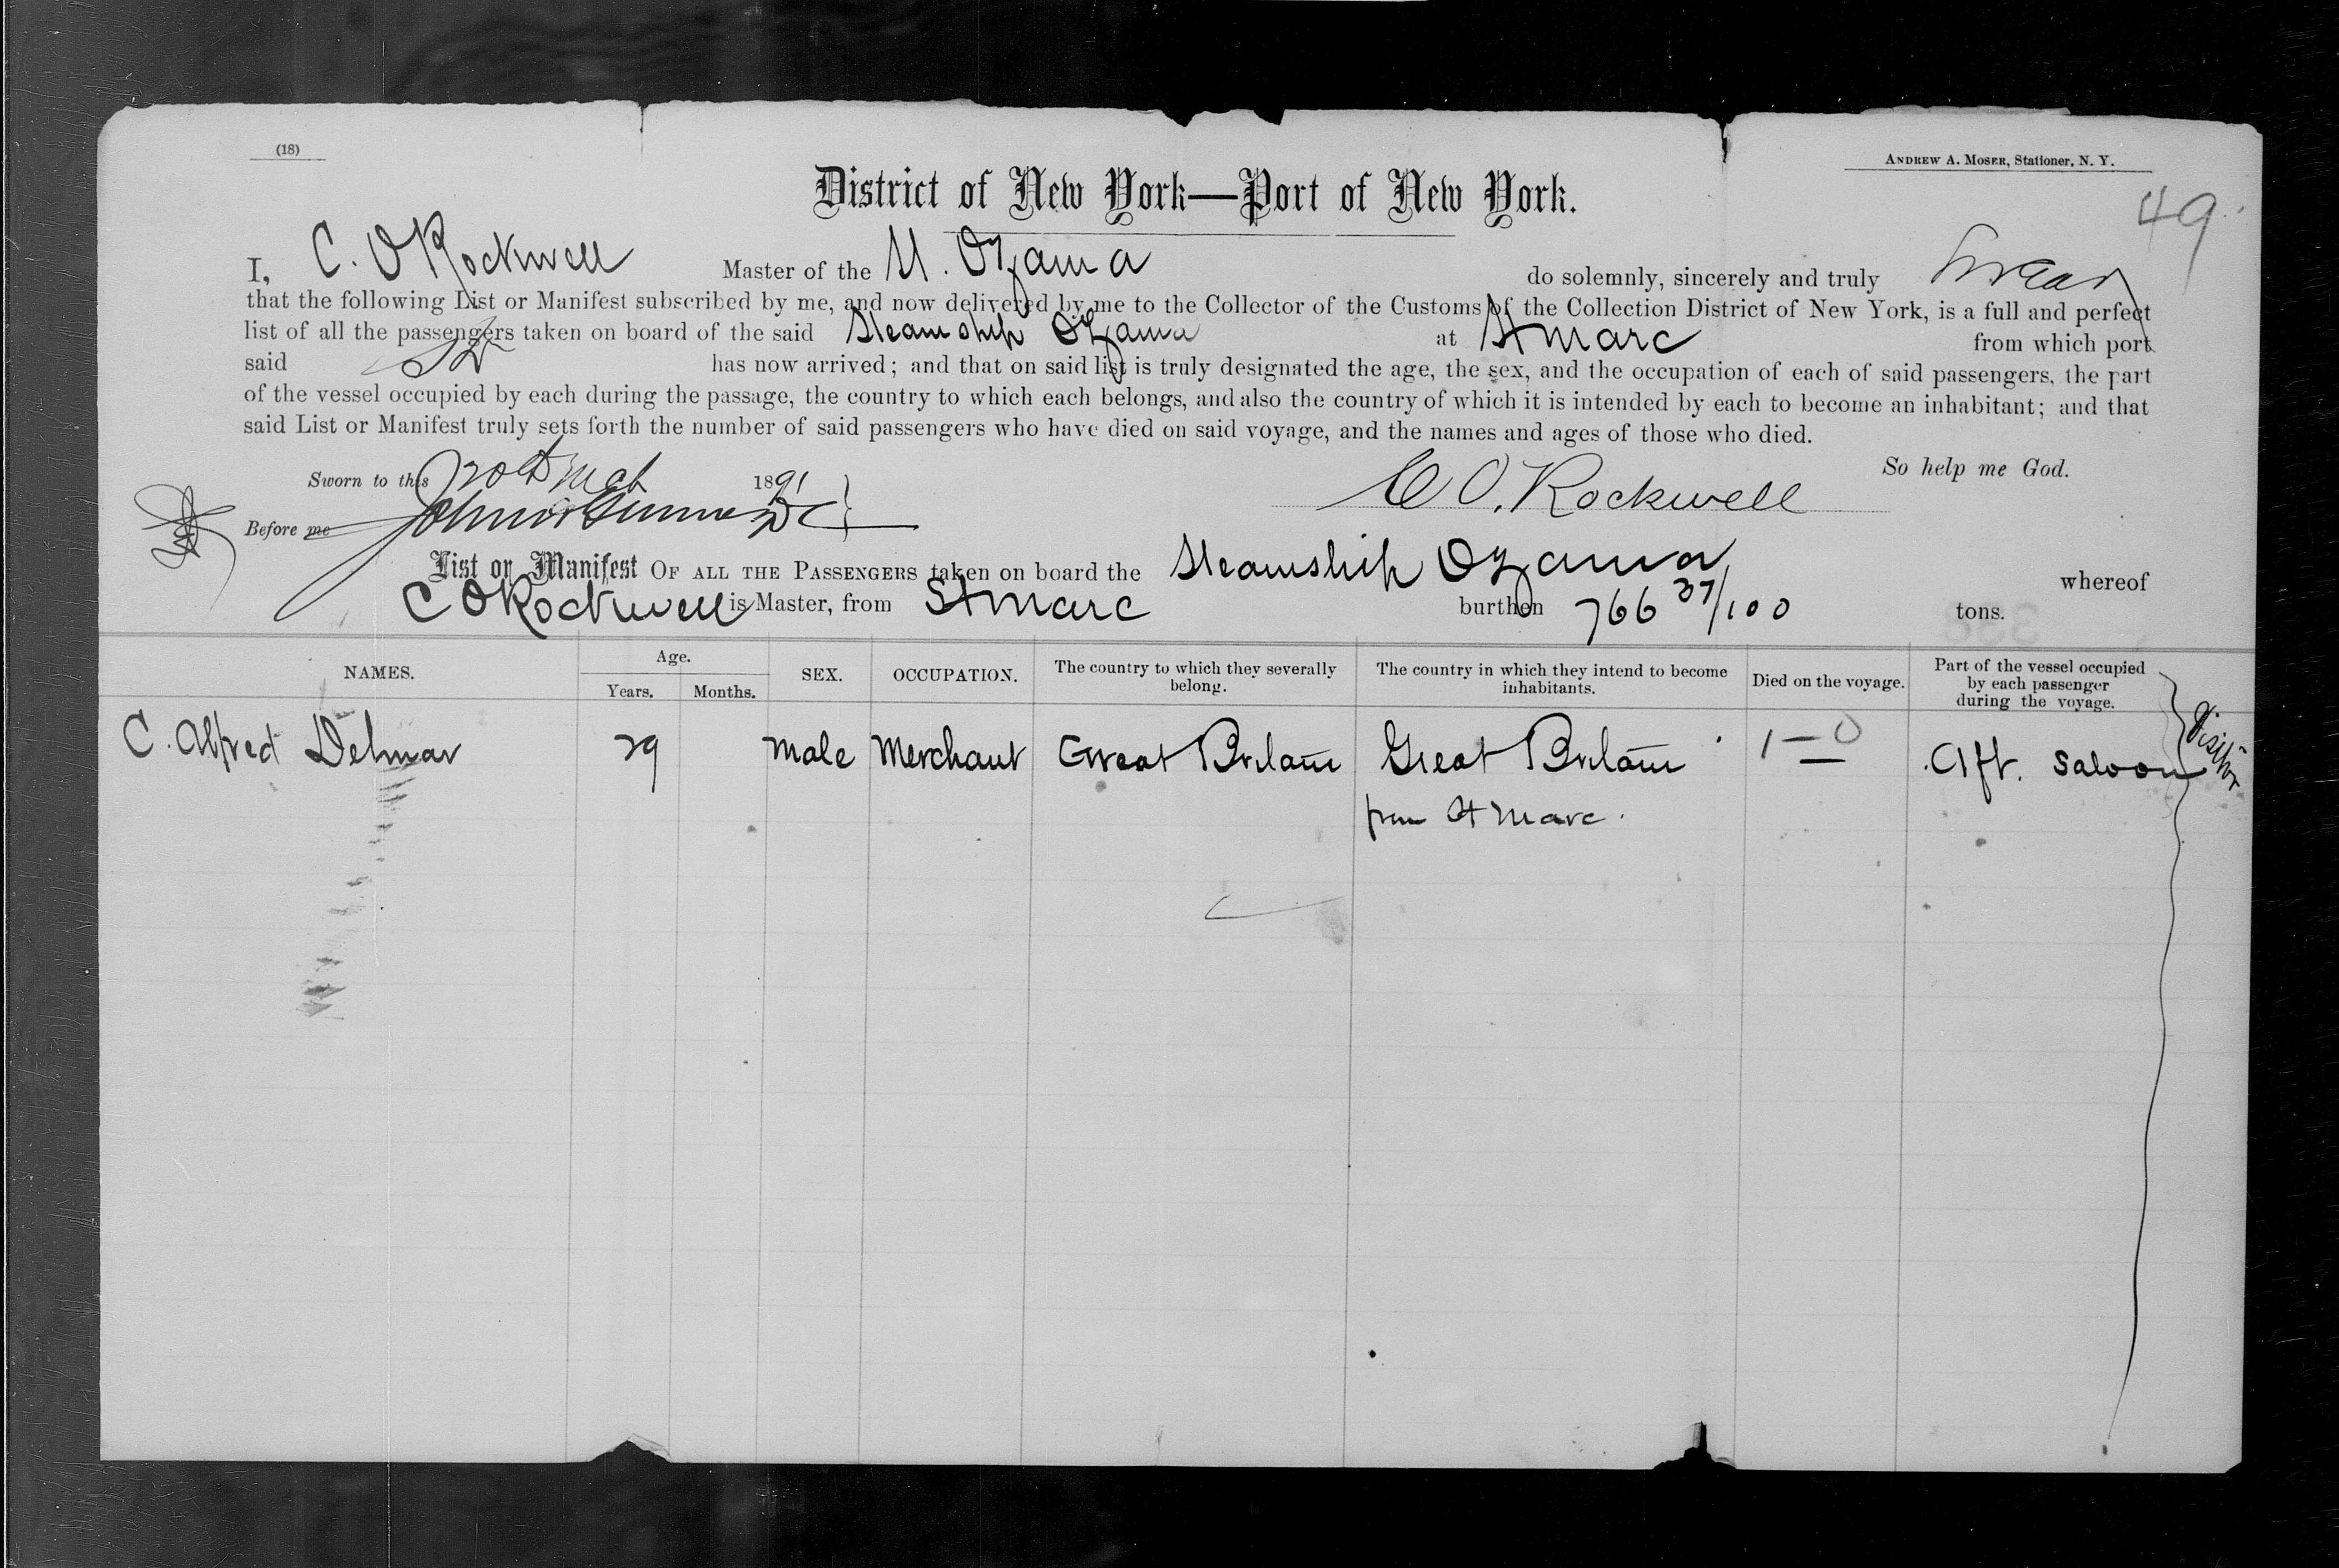 (18)
ANDREW A. MOSER, Stationer, N. Y.
49
District of New York—Port of New York.
I, C. O Rockwell Master of the SS. Ozama do solemnly, sincerely and truly Swear
that the following List or Manifest subscribed by me, and now delivered by me to the Collector of the Customs of the Collection District of New York, is a full and perfect
list of all the passengers taken on board of the said Steamship Ozama at St Marc from which port
said has now arrived; and that on said list is truly designated the age, the sex, and the occupation of each of said passengers, the part
of the vessel occupied by each during the passage, the country to which each belongs, and also the country of which it is intended by each to become an inhabitant; and that
said List or Manifest truly sets forth the number of said passengers who have died on said voyage, and the names and ages of those who died.
So help me God.
Sworn to this 20th Mch 1891
C O. Rockwell
Before me
List or Manifest OF ALL THE PASSENGERS taken on board the Steamship Ozama whereof
C O Rockwell is Master, from St Marc burthen 766 37/100 tons.
NAMES. Age. Years. Months. SEX. OCCUPATION. The country to which they severally belong. The country in which they intend to become inhabitants. Died on the voyage. Part of the vessel occupied by each passenger during the voyage.
C. Alfred Delmar 29 Male Merchant Great Britain Great Britain 1 — 0 Aft. Saloon Visitor
from St Marc.